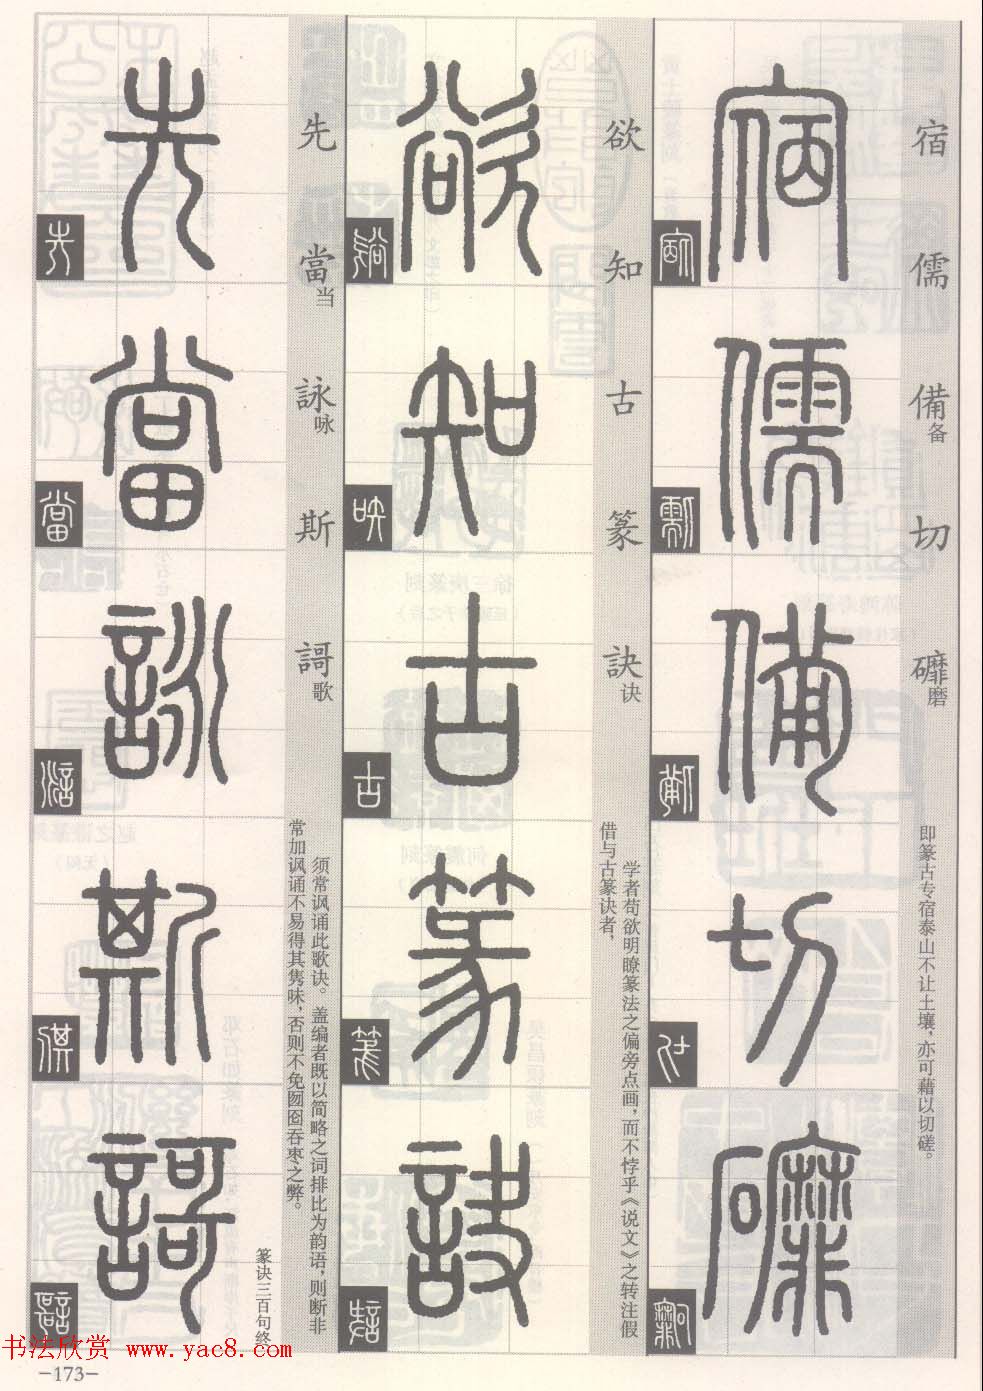 宿儒備切礳
宿儒備备切礳磨
即篆古专宿泰山不让土壤，亦可藉以切磋。
欲知古篆訣
欲知古篆訣诀
学者苟欲明瞭篆法之偏旁点画，而不悖乎《说文》之转注假
借与古篆诀者，
先當詠斯謌
先當当詠咏斯謌歌
须常讽诵此歌诀。盖编者既以简略之词排比为韵语，则断非
常加讽诵不易得其隽味，否则不免囫囵吞枣之弊。
篆诀三百句终
书法欣赏 www.yac8.com
-173-